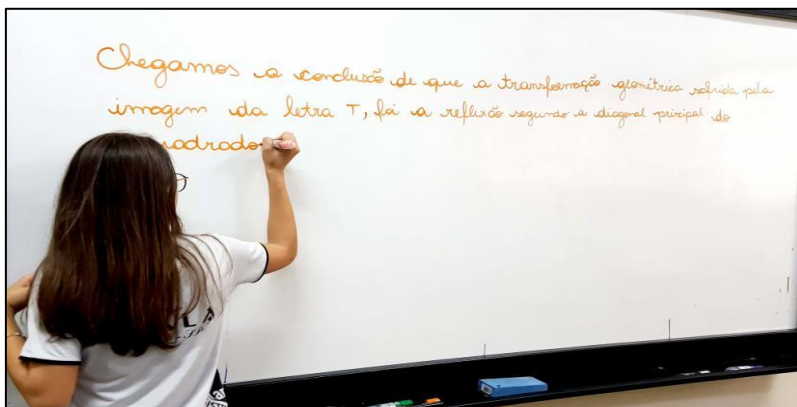 Chegamos a conclusão de que a transformação geométrica sofrida pela
imagem da letra T, foi a reflexão segundo a diagonal pricipal do
uadrado